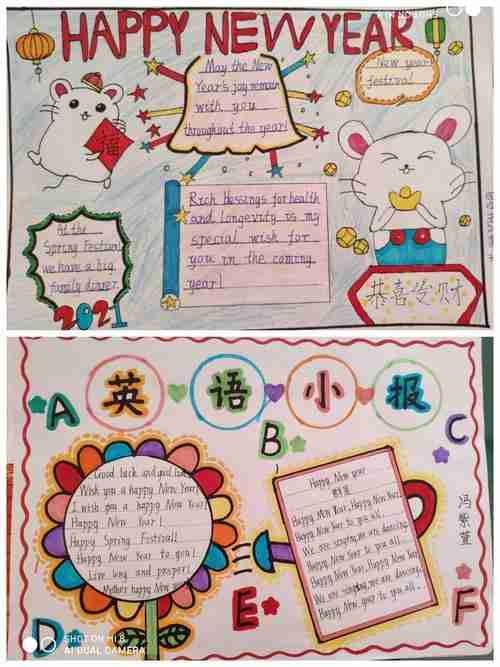 HAPPY NEW YEAR
May the New
Year's joy remain
with you
throughout the year!
New year
festival
福
Rich blessings for health
and longevity is my
special wish for
you in the coming
year!
At the
Spring Festival
we have a big
family dinner
2021
恭喜发财
英语小报
A
B
C
Good luck and good
Wish you a happy New Year!
I wish you a happy New Year!
Happy New Year!
Happy Spring Festival!
Happy New Year to you!
Live long and prosper!
Mother happy New year
Happy New year
Happy New Year, Happy New Year,
Happy New Year to you all.
We are singing, we are dancing,
Happy New Year to you all.
Happy New Year, Happy New Year,
We are singing, we are dancing,
Happy New Year to you all.
冯紫萱
D
E
F
SHOT ON MI 8
AI DUAL CAMERA